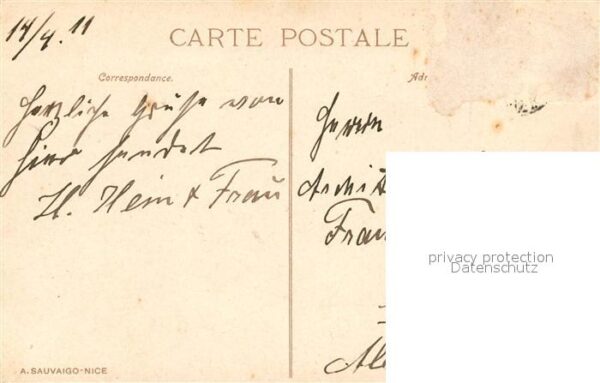 14/4.11
CARTE POSTALE
Correspondance.
Herzliche Grüße von
hier sendet
H. Hein & Frau
Herrn
Frau
privacy protection
Datenschutz
A. SAUVAIGO-NICE